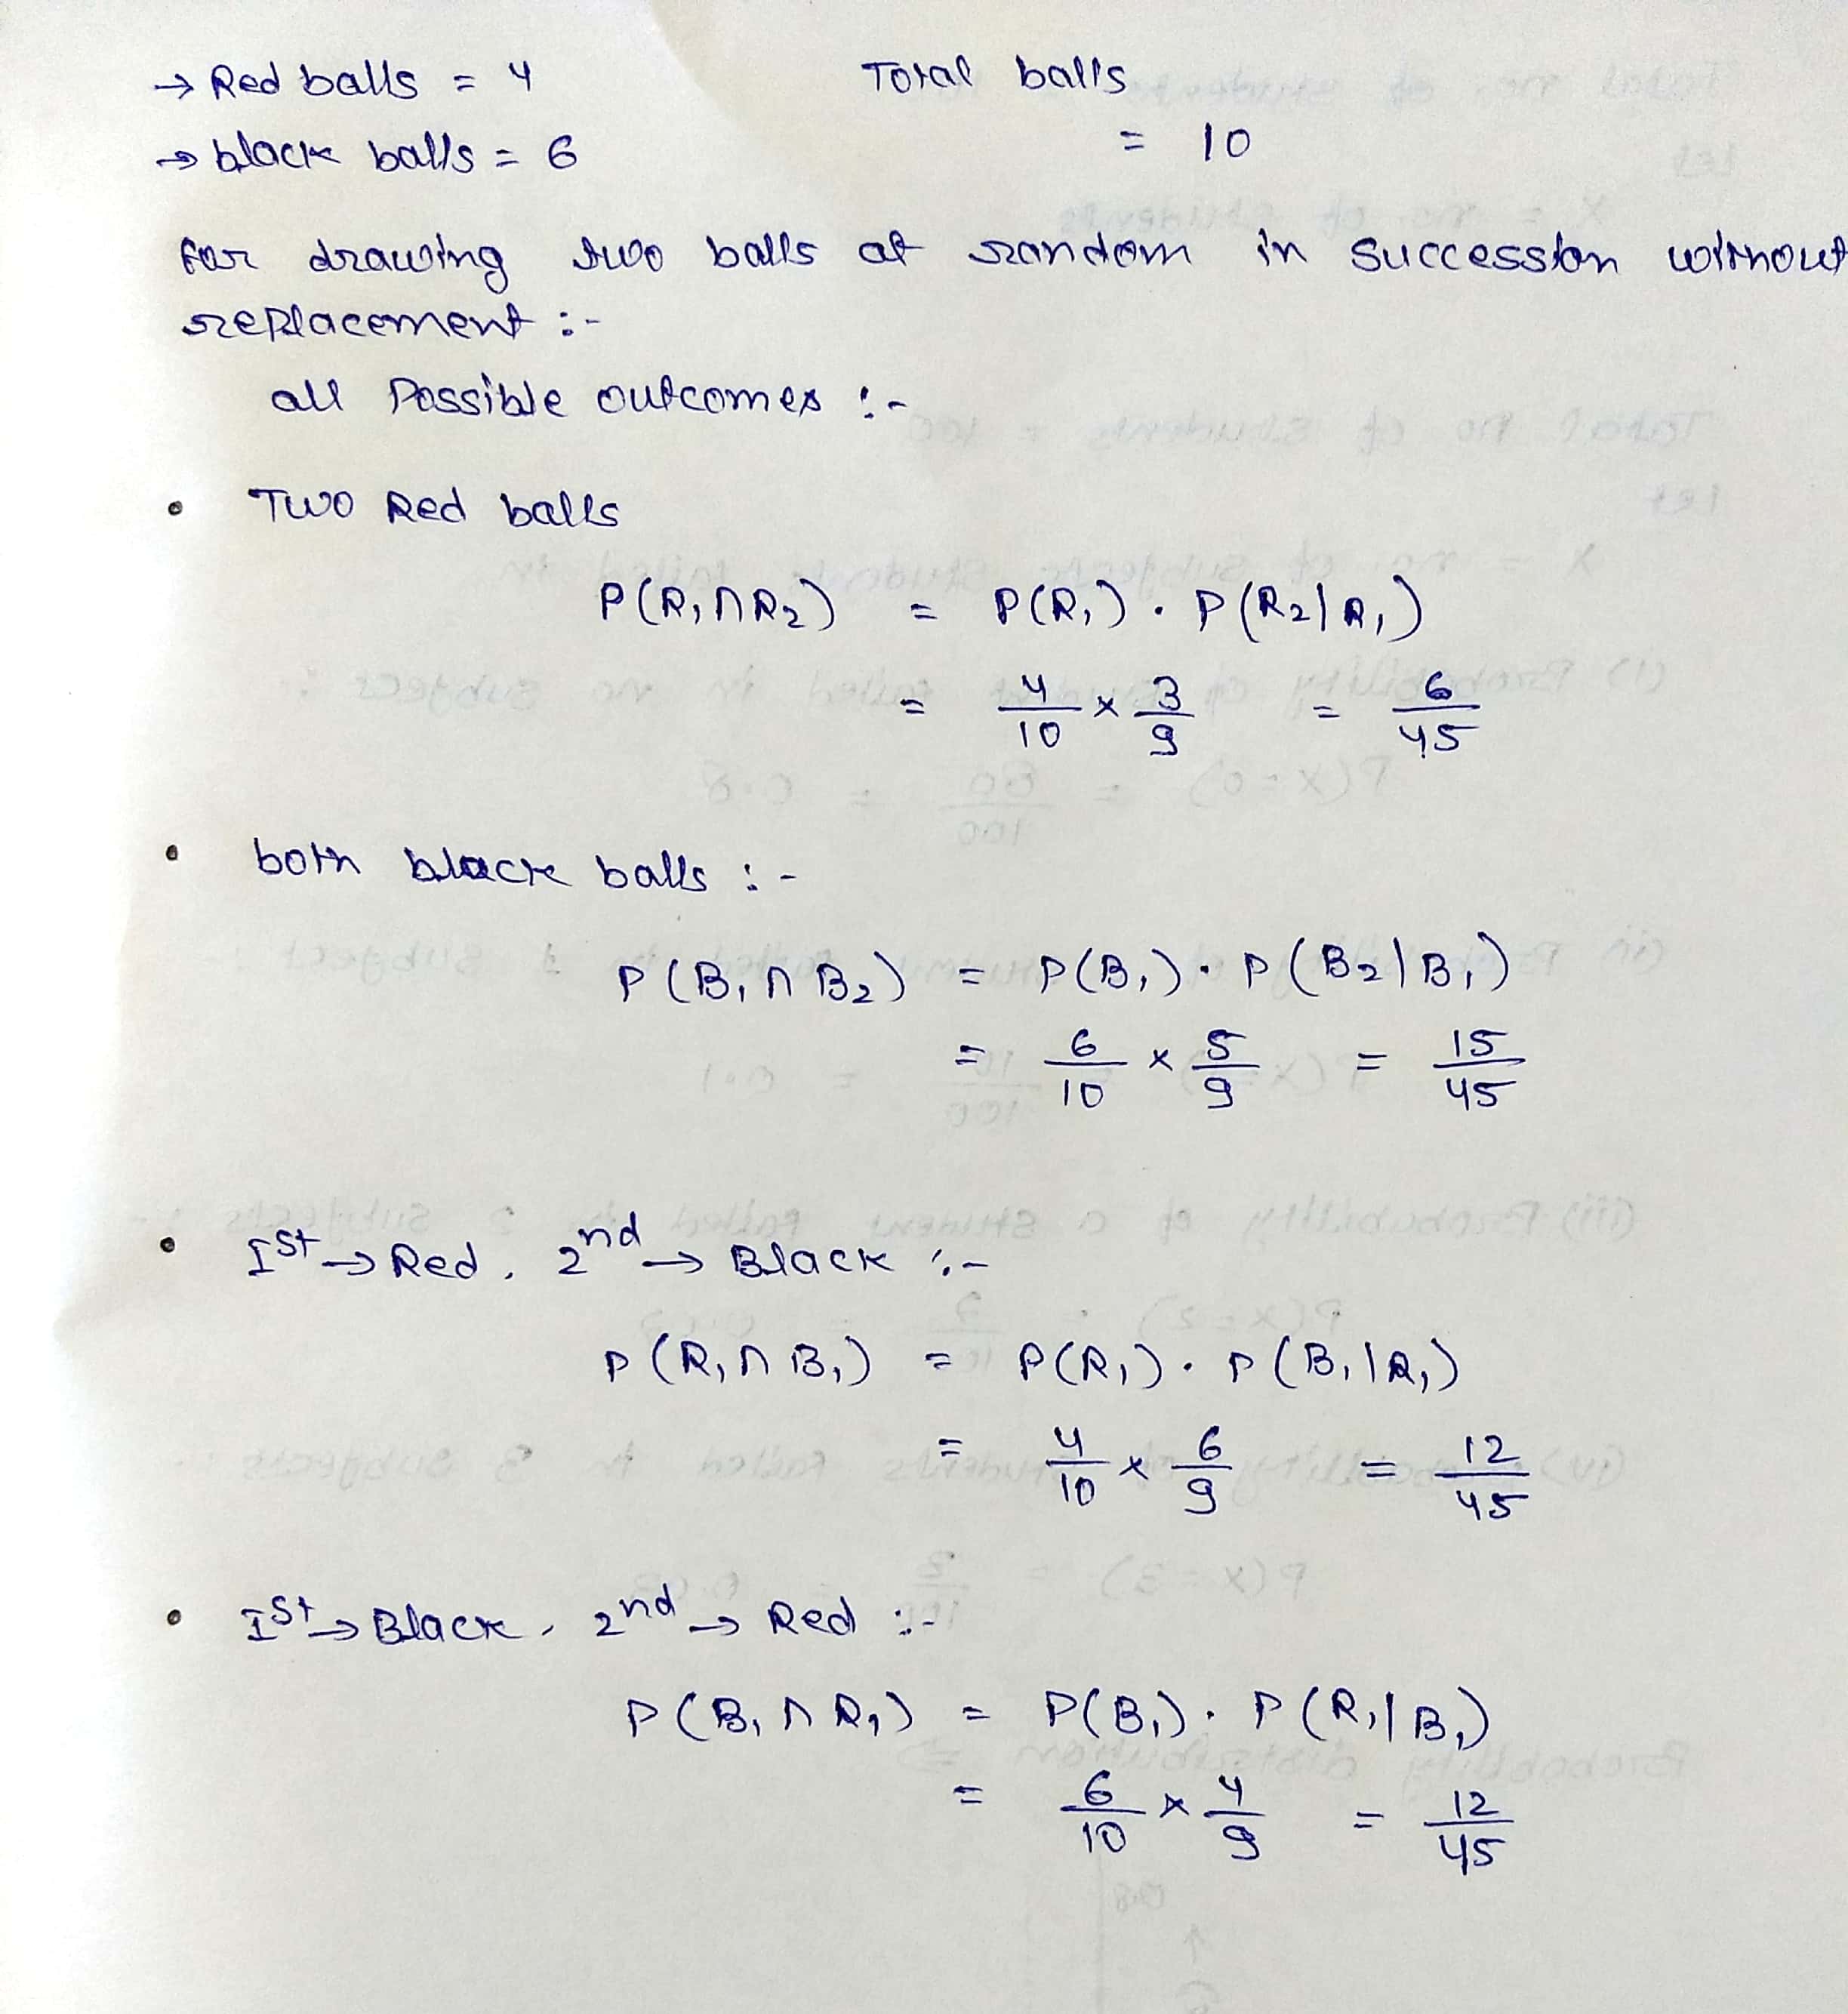 → Red balls = 4
Total balls
→ black balls = 6
= 10
for drawing two balls at random in succession without
replacement :-
all Possible outcomes :-
• Two Red balls
P(R₁∩R₂) = P(R₁) . P(R₂|R₁)
= 4/10 × 3/9 = 6/45
• both black balls :-
P(B₁∩B₂) = P(B₁) . P(B₂|B₁)
= 6/10 × 5/9 = 15/45
• Ist → Red, 2nd → Black :-
P(R₁∩B₁) = P(R₁) . P(B₁|R₁)
= 4/10 × 6/9 = 12/45
• Ist → Black, 2nd → Red :-
P(B₁∩R₁) = P(B₁) . P(R₁|B₁)
= 6/10 × 4/9 = 12/45